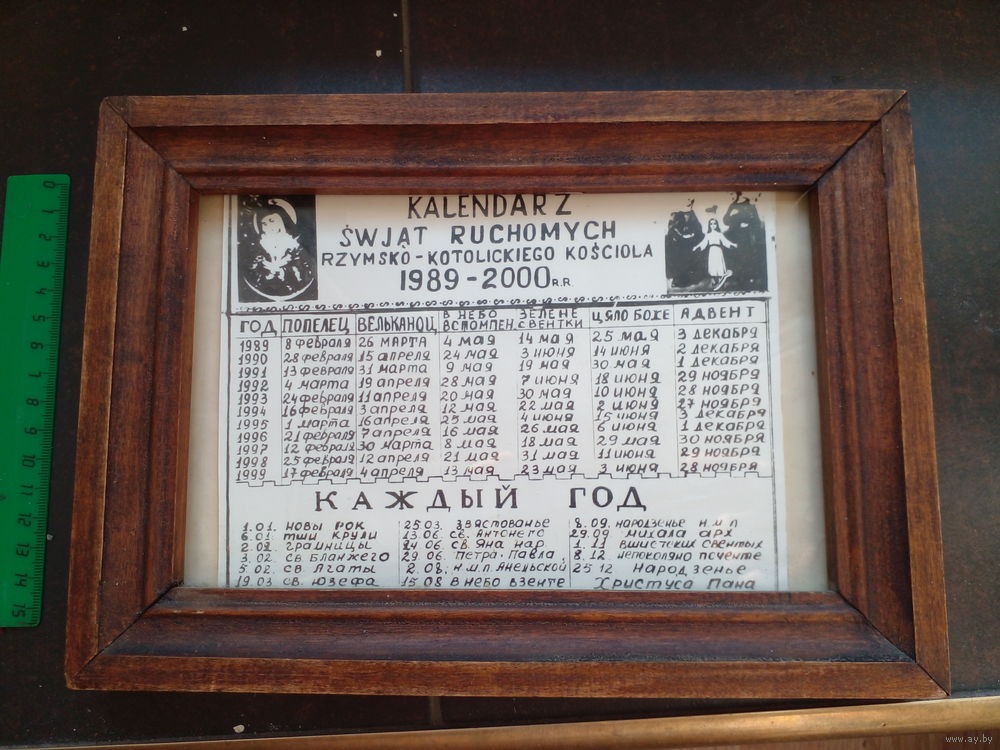 KALENDARZ
ŚWJĄT RUCHOMYCH
RZYMSKO-KOTOLICKIEGO KOŚCIOLA
1989-2000 R.R.
ГОД ПОПЕЛЕЦ ВЕЛЬКАНОЦ В НЕБО ВСТОМПЕН ЗЕЛЕНЕ СВЕНТКИ ЦЯЛО БОЖЕ АДВЕНТ
1989 8 февраля 26 МАРТА 4 мая 14 мая 25 мая 3 декабря
1990 28 февраля 15 апреля 24 мая 3 июня 14 июня 2 декабря
1991 13 февраля 31 марта 9 мая 19 мая 30 мая 1 декабря
1992 4 марта 19 апреля 28 мая 7 июня 18 июня 29 ноября
1993 24 февраля 11 апреля 20 мая 30 мая 10 июня 28 ноября
1994 16 февраля 3 апреля 12 мая 22 мая 2 июня 27 ноября
1995 1 марта 16 апреля 25 мая 4 июня 15 июня 3 декабря
1996 21 февраля 7 апреля 16 мая 26 мая 6 июня 1 декабря
1997 12 февраля 30 марта 8 мая 18 мая 29 мая 30 ноября
1998 25 февраля 12 апреля 21 мая 31 мая 11 июня 29 ноября
1999 17 февраля 4 апреля 13 мая 23 мая 3 июня 28 ноября
КАЖДЫЙ ГОД
1.01. НОВЫ РОК 25.03. ЗВЯСТОВАНЬЕ 8.09. НАРОДЗЕНЬЕ Н.М.П
6.01. ТШИ КРУЛИ 13.06. СВ. АНТОНЕГО 29.09 МИХАЛА АРХ
2.02. ГРАМНИЦЫ 24 06 СВ. ЯНА НАР. 1. 11 ВШИСТКИХ СВЕНТЫХ
3.02 СВ БЛАНЖЕГО 29 06. ПЕТРА. ПАВЛА. 8.12 НЕПОКОЛЯНО ПОЧЕНТЕ
5.02 СВ. АГАТЫ 2.08. Н.М.П. АНЕЛЬСКОЙ 25 12 НАРОДЗЕНЬЕ
19.03 СВ. ЮЗЕФА 15 08 В НЕБО ВЗЕНТЕ ХРИСТУСА ПАНА
0 1 2 3 4 5 6 7 8 9 10 11 12 13 14 15
www.ay.by